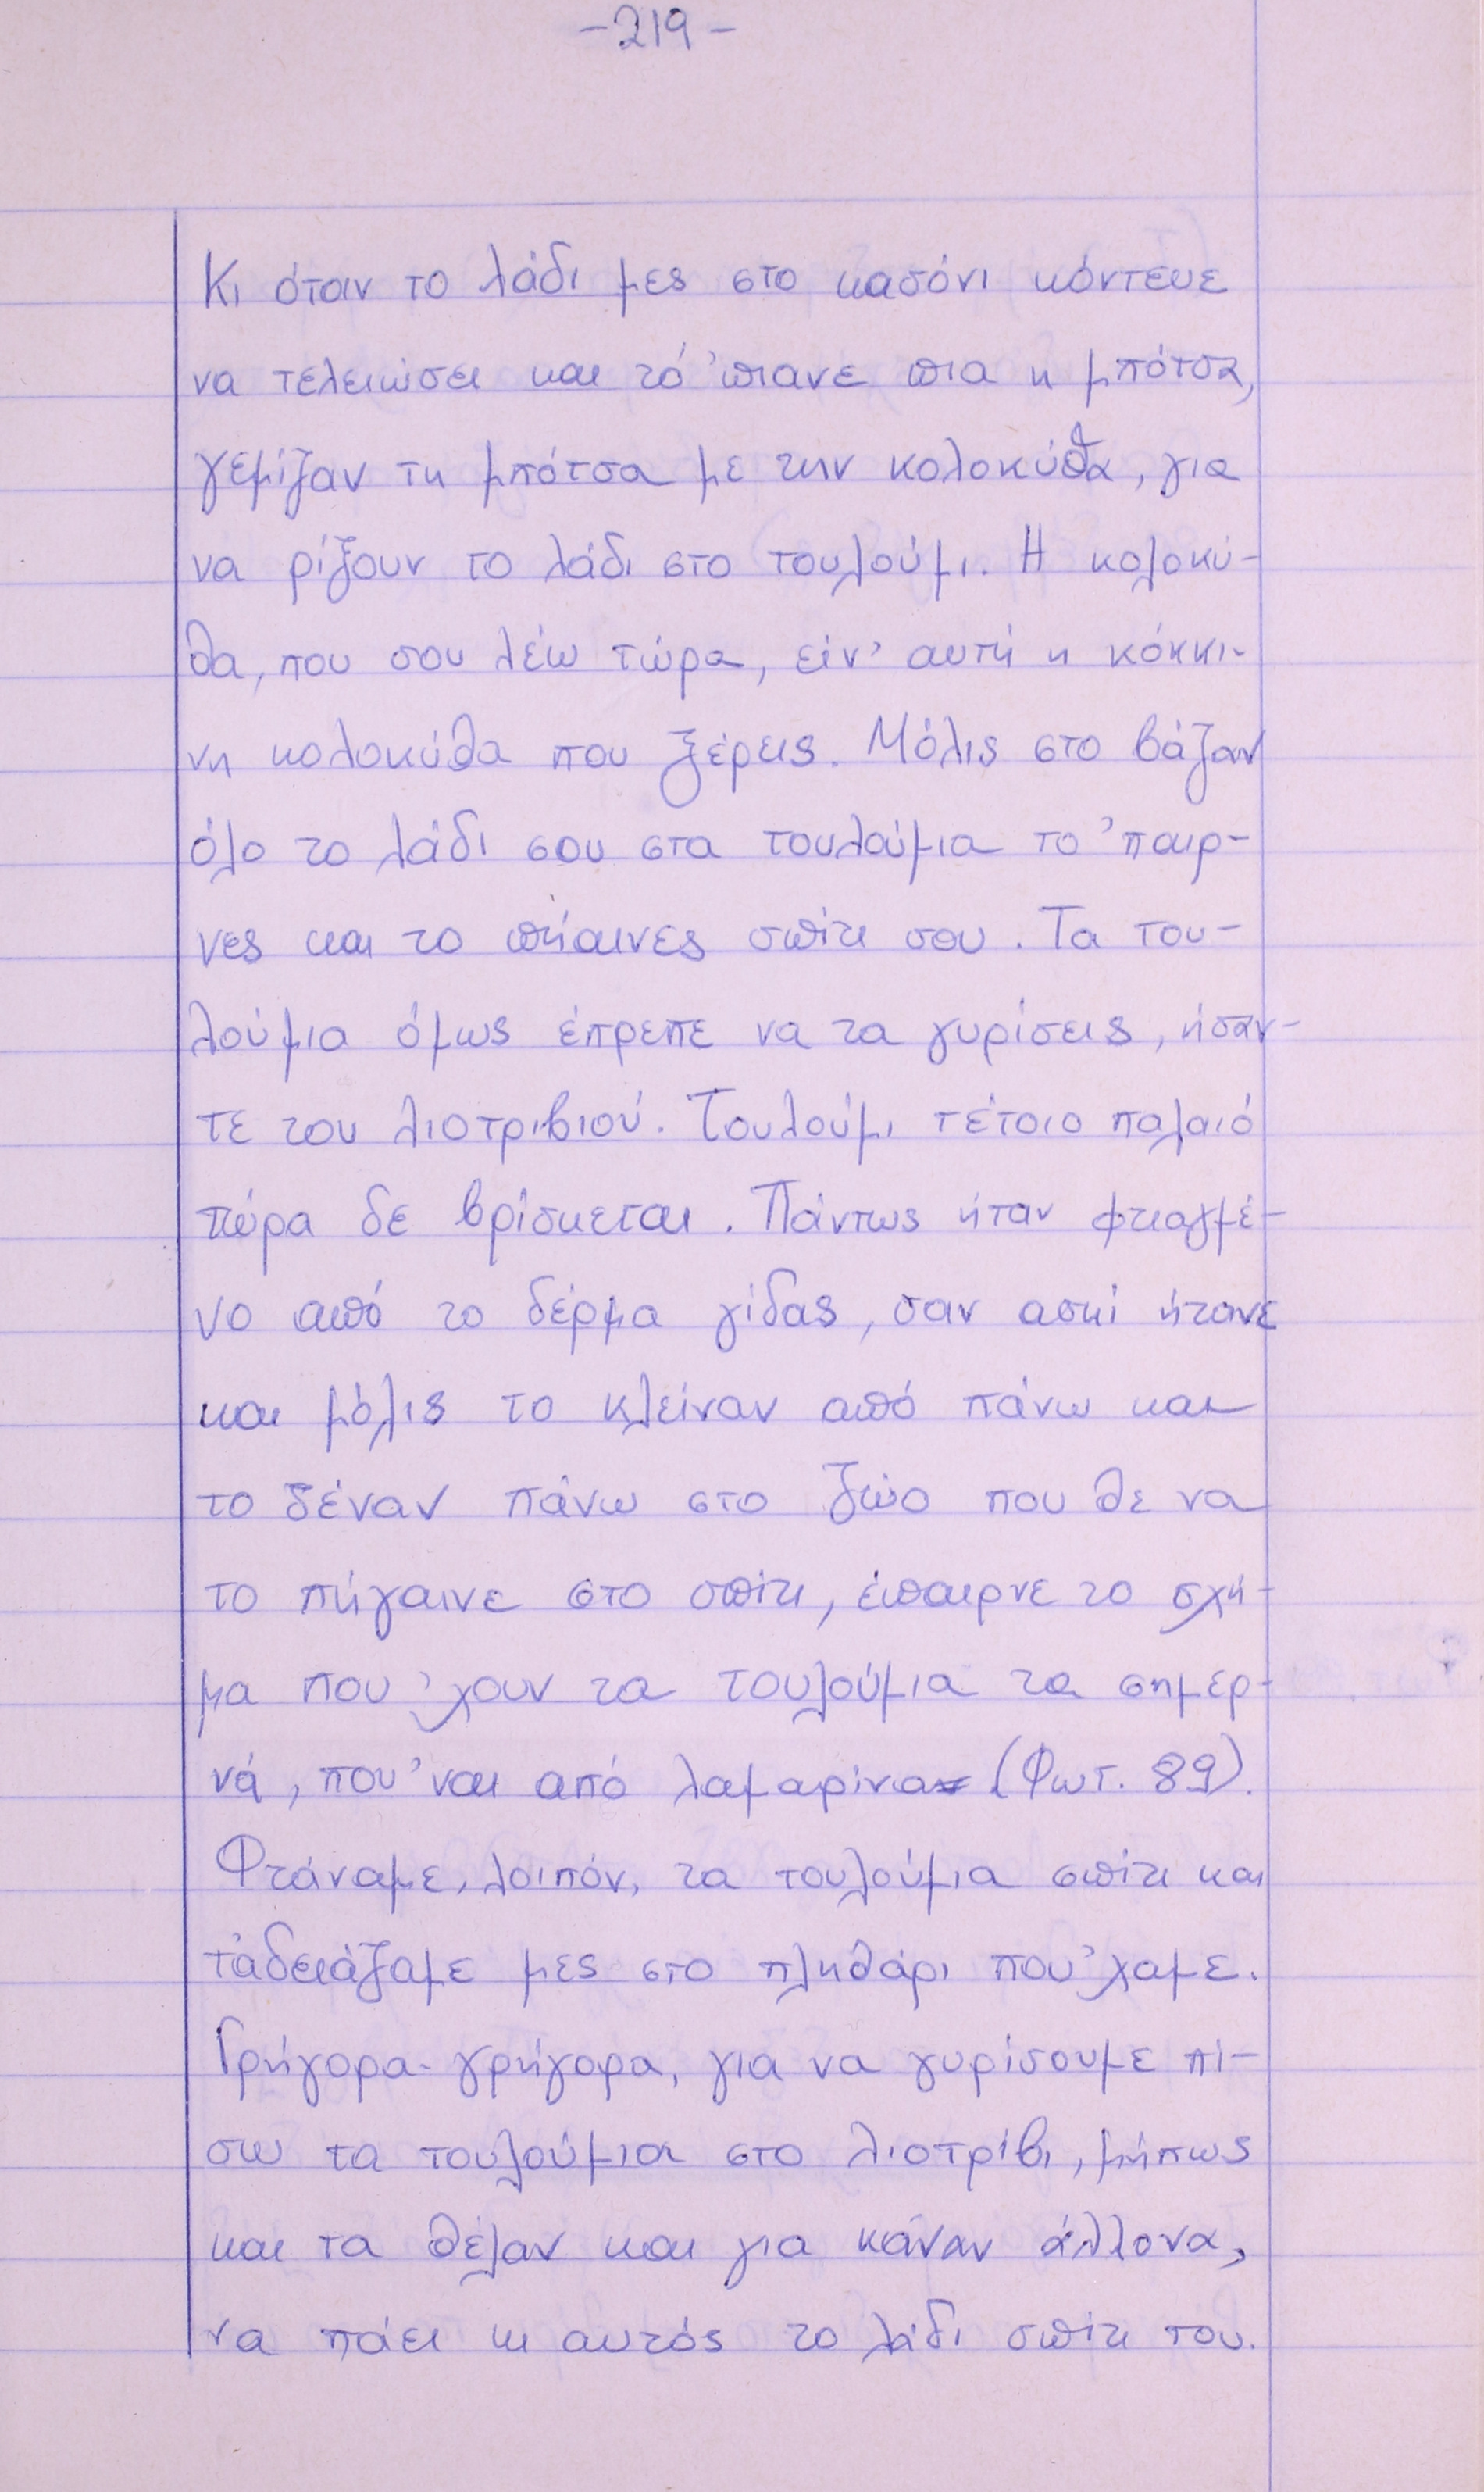 -219-
Κι όταν το λάδι μες στο κασόνι κόντευε
να τελειώσει και τό 'πιανε πια η μπότσα,
γεμίζαν τη μπότσα με την κολοκύθα, για
να ρίξουν το λάδι στο τουλούμι. Η κολοκύ-
θα, που σου λέω τώρα, είν' αυτή η κόκκι-
νη κολοκύθα που ξέρεις. Μόλις στο βάζαν
όλο το λάδι σου στα τουλούμια το 'παιρ-
νες και το πήαινες σπίτι σου. Τα του-
λούμια όμως έπρεπε να τα γυρίσεις, ήσαν-
τε του λιοτριβιού. Τουλούμι τέτοιο παλαιό
τώρα δε βρίσκεται. Πάντως ήταν φτιαγμέ-
νο από το δέρμα γίδας, σαν ασκί ήτανε
και μόλις το κλείναν από πάνω και
το δέναν πάνω στο ζώο που θε να
το πήγαινε στο σπίτι, έπαιρνε το σχή-
μα που 'χουν τα τουλούμια τα σημερ-
νά, που 'ναι από λαμαρίνα (Φωτ. 89).
Φτάναμε, λοιπόν, τα τουλούμια σπίτι και
τ'αδειάζαμε μες στο πληθάρι που 'χαμε.
Γρήγορα-γρήγορα, για να γυρίσουμε πί-
σω τα τουλούμια στο λιοτρίβι, μήπως
και τα θέλαν και για κάναν άλλονα,
να πάει κι αυτός το λάδι σπίτι του.